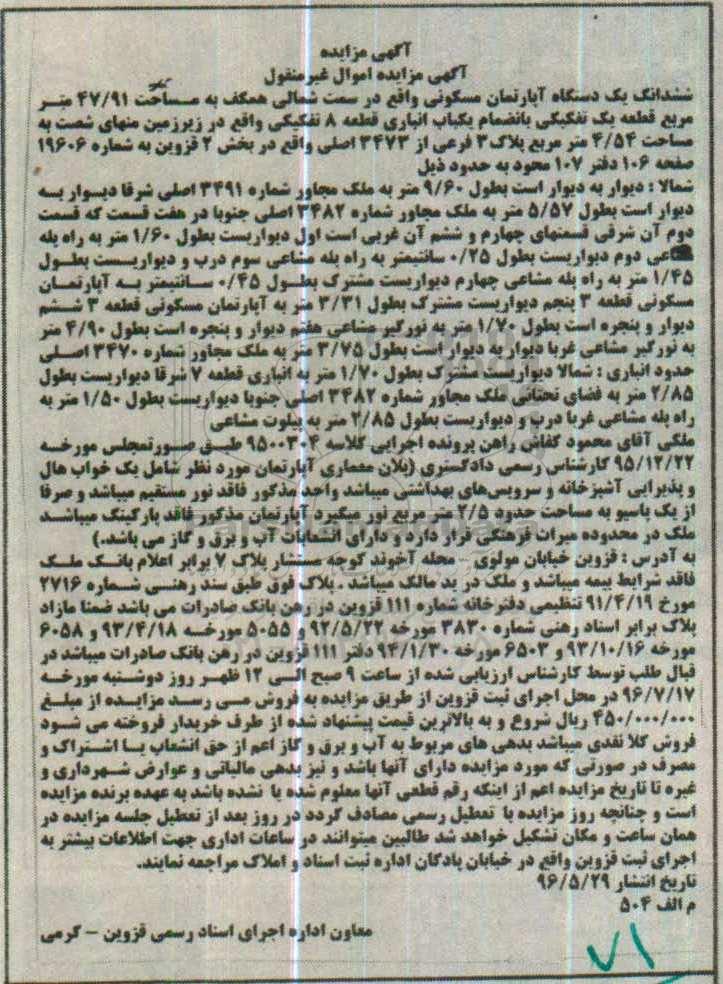 آگهی مزایده
آگهی مزایده اموال غیرمنقول
ششدانگ یک دستگاه آپارتمان مسکونی واقع در سمت شمالی همکف به مساحت ۴۷/۹۱ متر
مربع قطعه یک تفکیکی بانضمام یکباب انباری قطعه ۸ تفکیکی واقع در زیرزمین منهای شصت به
مساحت ۴/۵۴ متر مربع پلاک ۳ فرعی از ۳۴۷۳ اصلی واقع در بخش ۲ قزوین به شماره ۱۹۶۰۶
صفحه ۱۰۶ دفتر ۱۰۷ محود به حدود ذیل
شمالا : دیوار به دیوار است بطول ۹/۶۰ متر به ملک مجاور شماره ۳۴۹۱ اصلی شرقا دیوار به
دیوار است بطول ۵/۵۷ متر به ملک مجاور شماره ۳۴۸۲ اصلی جنوبا در هفت قسمت که قسمت
دوم آن شرقی قسمتهای چهارم و ششم آن غربی است اول دیواریست بطول ۱/۶۰ متر به راه پله
دوم دیواریست بطول ۰/۲۵ سانتیمتر به راه پله مشاعی سوم درب و دیواریست بطول
۱/۴۵ متر به راه پله مشاعی چهارم دیواریست مشترک بطول ۰/۴۵ سانتیمتر به آپارتمان
مسکونی قطعه ۳ پنجم دیواریست مشترک بطول ۳/۳۱ متر به آپارتمان مسکونی قطعه ۳ ششم
دیوار و پنجره است بطول ۱/۷۰ متر به نورگیر مشاعی هفتم دیوار و پنجره است بطول ۴/۹۰ متر
به نورگیر مشاعی غربا دیوار به دیوار است بطول ۳/۷۵ متر به ملک مجاور شماره ۳۴۷۰ اصلی
حدود انباری : شمالا دیواریست مشترک بطول ۱/۷۰ متر به انباری قطعه ۷ شرقا دیواریست بطول
۲/۸۵ متر به فضای تحتانی ملک مجاور شماره ۳۴۸۲ اصلی جنوبا دیواریست بطول ۱/۵۰ متر به
راه پله مشاعی غربا درب و دیواریست بطول ۲/۸۵ متر به پیلوت مشاعی
ملکی آقای محمود کفاش راهن پرونده اجرایی کلاسه ۹۵۰۰۳۰۴ طبق صورتمجلس مورخه
۹۵/۱۲/۲۲ کارشناس رسمی دادگستری (پلان معماری آپارتمان مورد نظر شامل یک خواب هال
و پذیرایی آشپزخانه و سرویس‌های بهداشتی میباشد واحد مذکور فاقد نور مستقیم میباشد و صرفا
از یک پاسیو به مساحت حدود ۲/۵ متر مربع نور میگیرد آپارتمان مذکور فاقد پارکینگ میباشد
ملک در محدوده میراث فرهنگی قرار دارد و دارای انشعابات آب و برق و گاز می باشد.)
به آدرس : قزوین خیابان مولوی – محله آخوند کوچه مستشار پلاک ۷ برابر اعلام بانک ملک
فاقد شرایط بیمه میباشد و ملک در ید مالک میباشد . پلاک فوق طبق سند رهنی شماره ۲۷۱۶
مورخ ۹۱/۴/۱۹ تنظیمی دفترخانه شماره ۱۱۱ قزوین در رهن بانک صادرات می باشد ضمنا مازاد
پلاک برابر اسناد رهنی شماره ۳۸۳۰ مورخه ۹۲/۵/۲۲ و ۵۰۵۵ مورخه ۹۳/۴/۱۸ و ۶۰۵۸
مورخه ۹۳/۱۰/۱۶ و ۶۵۰۳ مورخه ۹۴/۱/۳۰ دفتر ۱۱۱ قزوین در رهن بانک صادرات میباشد در
قبال طلب توسط کارشناس ارزیابی شده از ساعت ۹ صبح الی ۱۲ ظهر روز دوشنبه مورخه
۹۶/۷/۱۷ در محل اجرای ثبت قزوین از طریق مزایده به فروش می رسد مزایده از مبلغ
۴۵۰/۰۰۰/۰۰۰ ریال شروع و به بالاترین قیمت پیشنهاد شده از طرف خریدار فروخته می شود
فروش کلا نقدی میباشد بدهی های مربوط به آب و برق و گاز اعم از حق انشعاب یا اشتراک و
مصرف در صورتی که مورد مزایده دارای آنها باشد و نیز بدهی مالیاتی و عوارض شهرداری و
غیره تا تاریخ مزایده اعم از اینکه رقم قطعی آنها معلوم شده یا نشده باشد به عهده برنده مزایده
است و چنانچه روز مزایده با تعطیل رسمی مصادف گردد در روز بعد از تعطیل جلسه مزایده در
همان ساعت و مکان تشکیل خواهد شد طالبین میتوانند در ساعات اداری جهت اطلاعات بیشتر به
اجرای ثبت قزوین واقع در خیابان پادگان اداره ثبت اسناد و املاک مراجعه نمایند.
تاریخ انتشار ۹۶/۵/۲۹
م الف ۵۰۴
معاون اداره اجرای اسناد رسمی قزوین – کرمی
۷۱